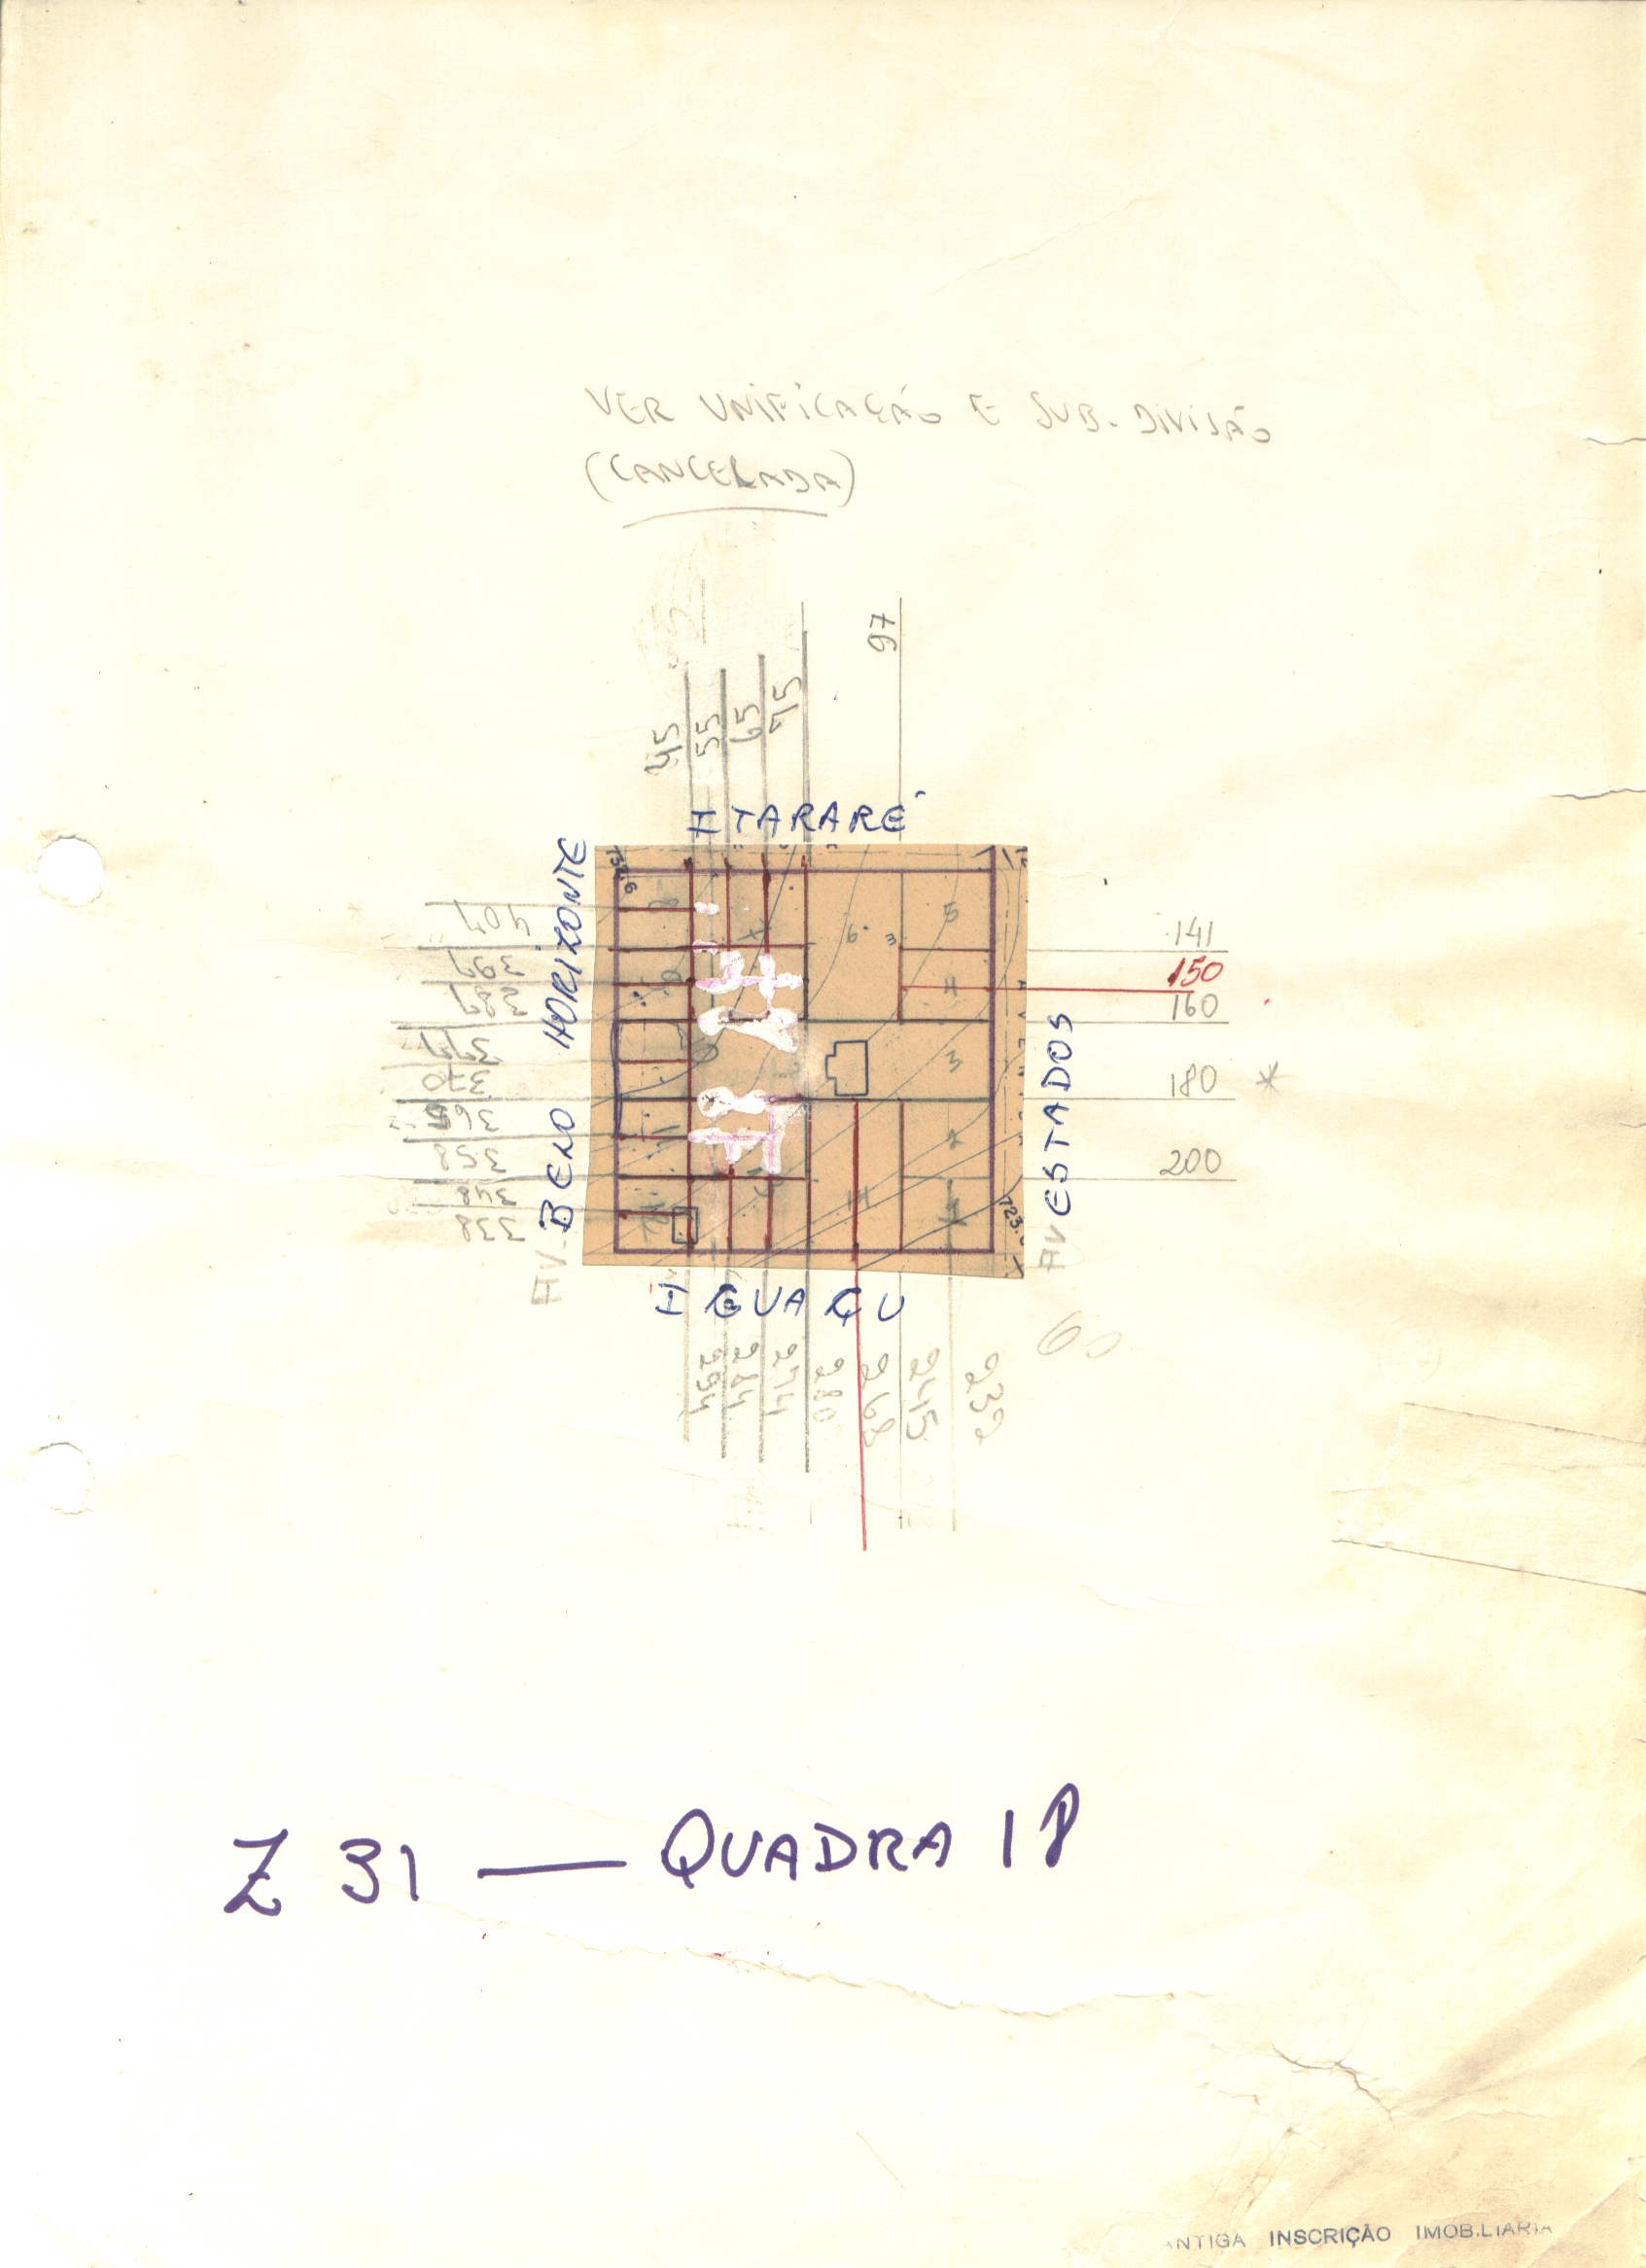 VER UNIFICAÇÃO E SUB-DIVISÃO
(CANCELADA)
97
45
55
65
75
ITARARÉ
AV. BELO HORIZONTE
407
397
389
377
370
365
358
348
338
141
150
160
180 *
200
AV ESTADOS
5
6
3
4
3
2
723.
IGUAÇU
294
284
274
280
268
245
239
60
Z 31 — QUADRA 18
ANTIGA INSCRIÇÃO IMOBILIARIA